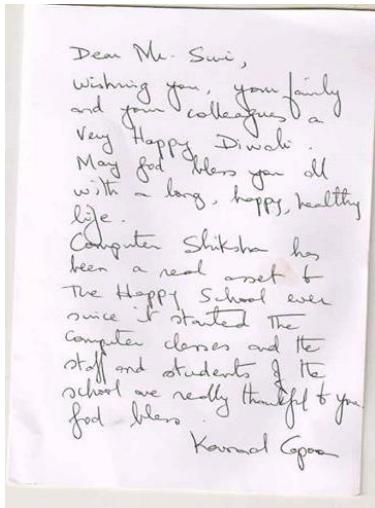 Dear Mr. Suri,
Wishing you, your family
and your colleagues a
Very Happy Diwali.
May God bless you all
with a long, happy, healthy
life.
Computer Shiksha has
been a real asset to
The Happy School ever
since it started the
computer classes and the
staff and students of the
school are really thankful to you.
God bless.